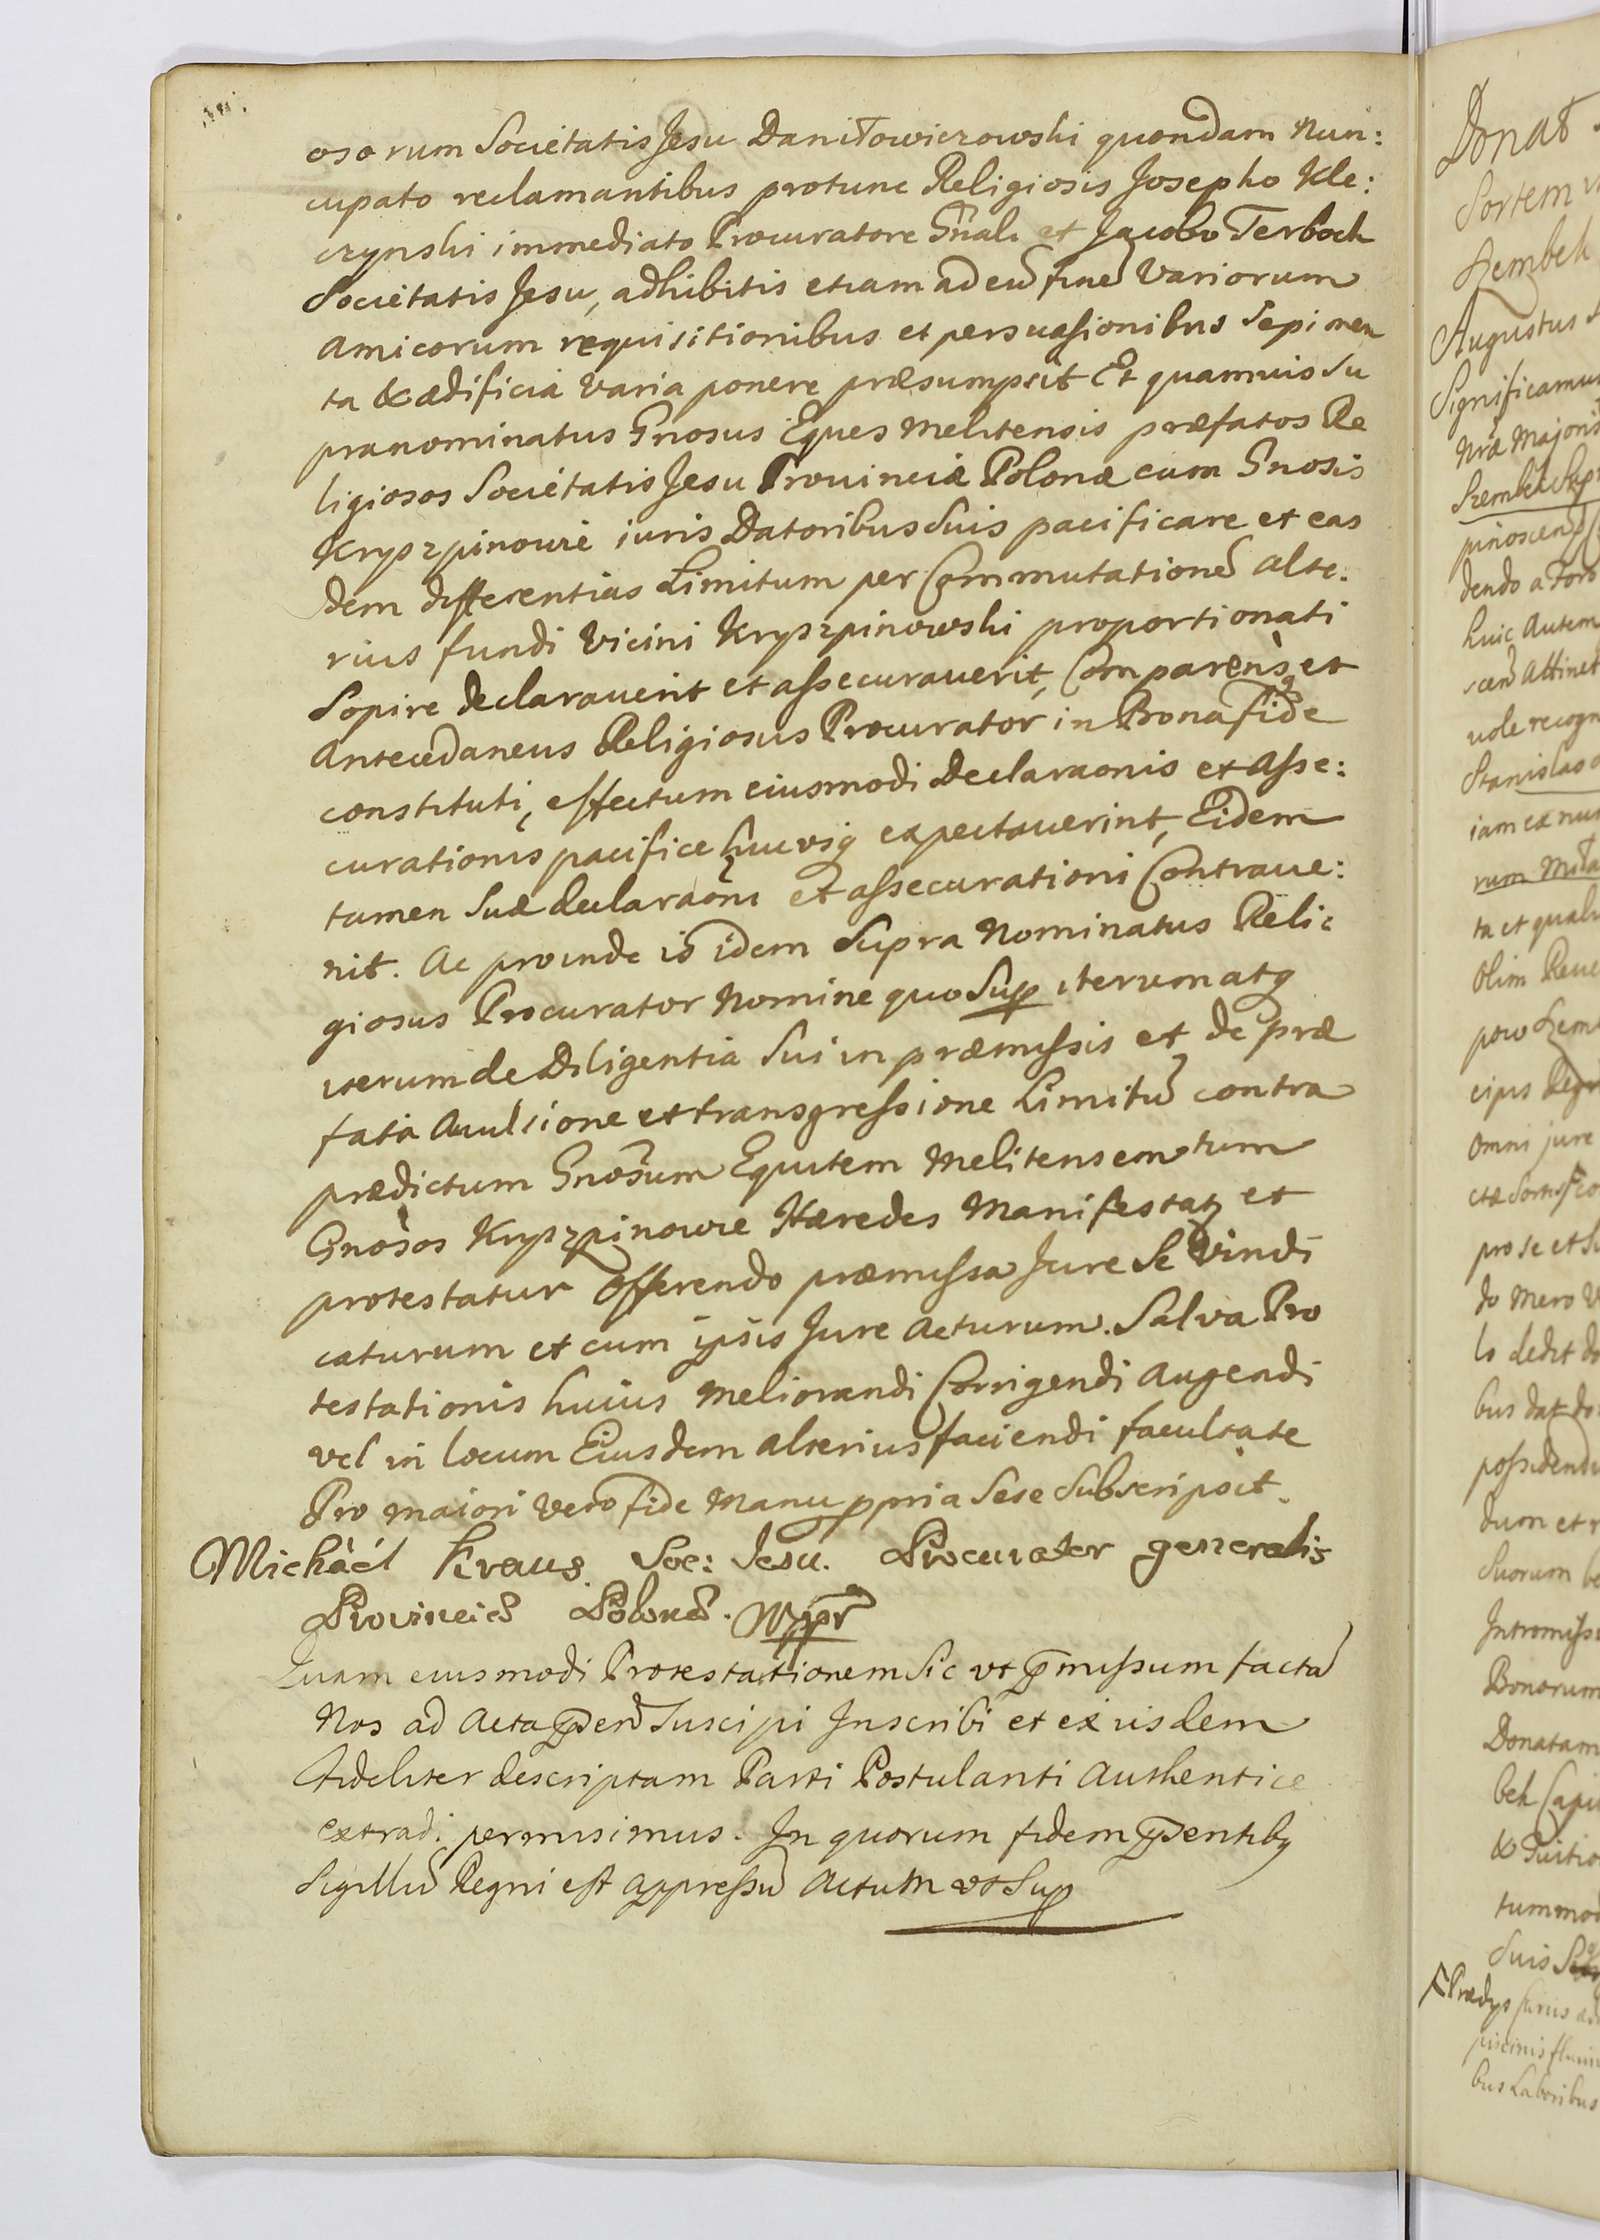 osorum Societatis Jesu Daniłowiczowski quondam Nun:
cupato reclamantibus protunc Religiosis Josepho Kle:
czynski immediato Procuratore Gñali et Jacobo Terboch
Societatis Jesu, adhibitis etiam ad eũ finẽ Variorum
Amicorum requisitionibus et persuasionibus Sepimen
ta & ædificia varia ponere præsumpsit Et quamuis Su
pranominatus Gnosus Eques Melitensis præfatos Re
ligiosos Societatis Jesu Prouinciæ Polonæ cum Gnosis
Kryszpinowie iuris Datoribus Suis pacificare et eas
dem differentias Limitum per Commutationẽ alte:
rius fundi Vicini Kryszpinowski proportionati
Sopire declarauerit et assecurauerit, Comparensq et
Antecedaneus Religiosus Procurator in Bona fide
constituti, effectum eiusmodi Declaraonis et Asse:
curationis pacifice hucusq expectauerint, Eidem
tamen Suæ declaraoni et assecurationi Contraue:
nit. Ac proinde is idem Supra Nominatus Reli:
giosus Procurator Nomine quo Sup iterum atq
iterum de Diligentia Sui in præmissis et de præ
fata Auulsione et transgressione Limitũ contra
prædictum Gnosum Equitem Melitensem tum
Gnosos Kryszpinowie Hæredes Manifestatq et
protestatur offerendo præmissa Jure Se Vindi
caturum et cum ipsis Jure Acturum. Salva Pro
testationis huius Meliorandi Corrigendi Augendi
vel in locum Eiusdem alterius faciendi facultate
Pro maiori vero fide Manu ppria Sese Subscripsit.
Michaël Kraus Soc: Jesu. Procurator generalis
Provinciæ Polonæ. Mppr
Quam eiusmodi Protestationem Sic vt pmissum factã
Nos ad Acta psentẽ Suscipi Inscribi et ex iisdem
fideliter descriptam Parti Postulanti Authentice
extradi permisimus. In quorum fidem psentibq
Sigillũ Regni est appressũ Actum vt Sup
Donat
Sortem
Szembek
Augustus
Significamus
Nræ Majoris
dendo a Foro
huic Autem
Attinet
uole recogn
Stanislao
iam ex nun
ta et quali
Olim Reue
omni jure
pro se et
do mero
lo dedit do
bus dat do
possidendi
dum et
Suorum
Intromiss
Bonorum
Donatam
bek Capi
tummod
Suis
bus Laboribus